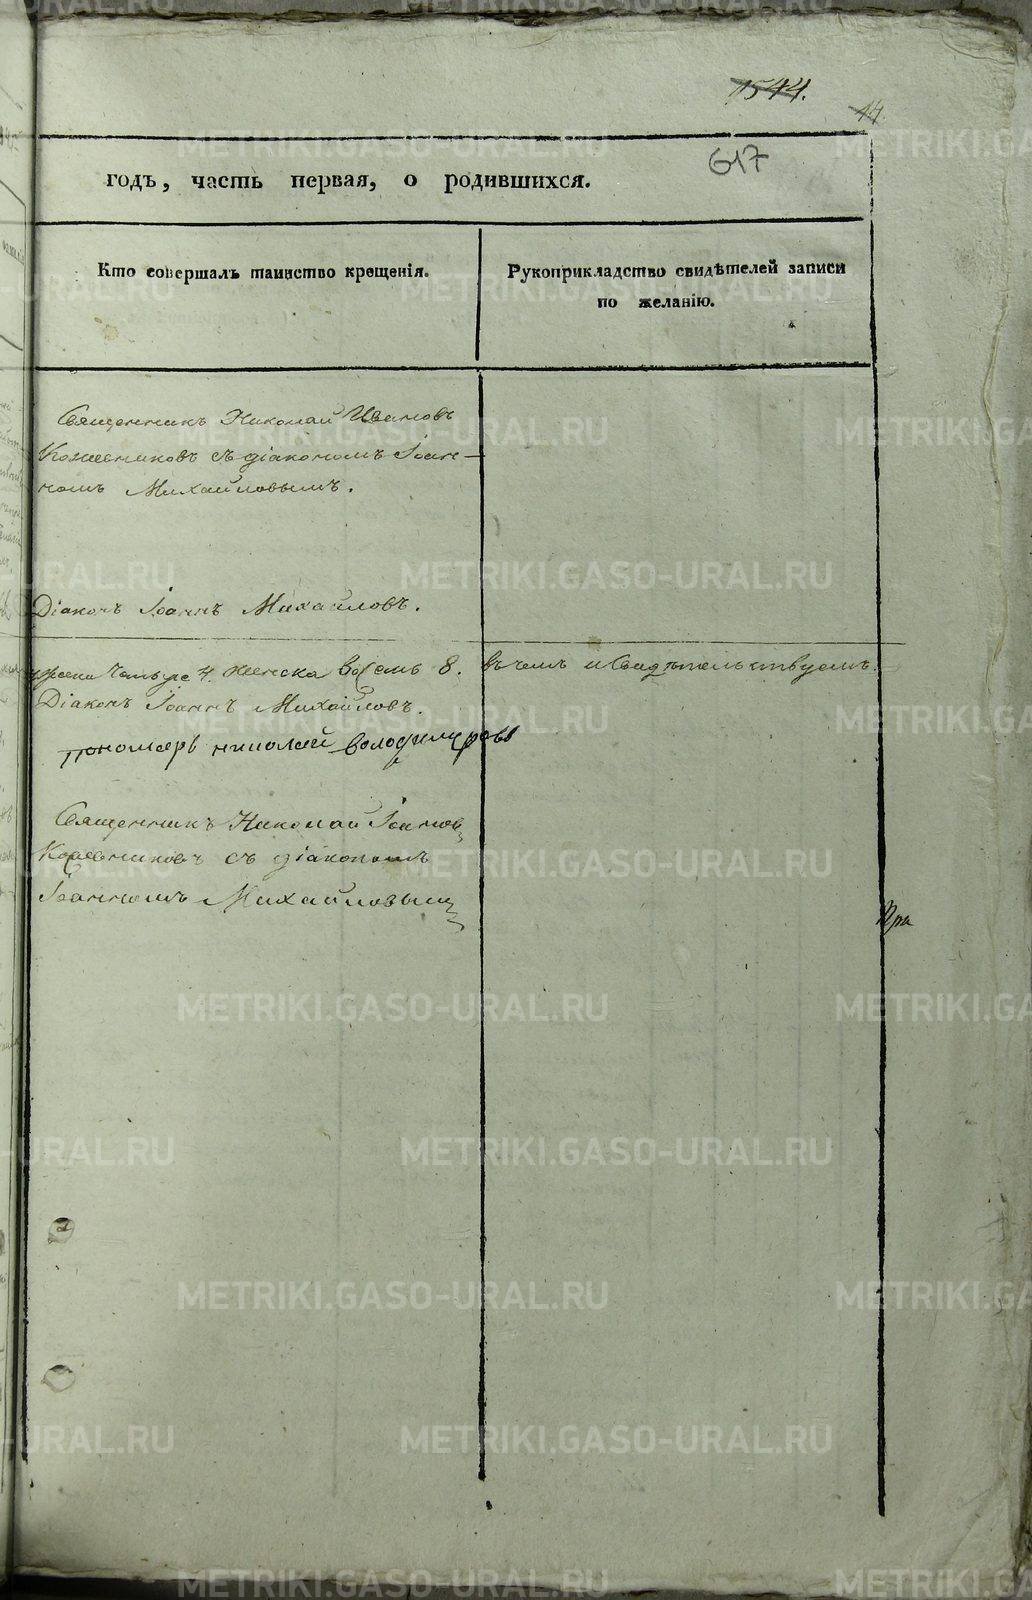 1544.
14.
617
годъ, часть первая, о родившихся.
Кто совершалъ таинство крещенія.
Рукоприкладство свидѣтелей записи
по желанію.
Священникъ Николай Ивановъ
Кожевниковъ съ діакономъ Іоан-
номъ Михайловымъ.
Діаконъ Іоаннъ Михайловъ.
четыре 4. женска восемь 8. въ чемъ и свидѣтельствуемъ.
Діаконъ Іоаннъ Михайловъ.
пономарь николай володимировъ
Священникъ Николай Іоанновъ
Кожевниковъ съ діакономъ
Іоанномъ Михайловымъ
При
METRIKI.GASO-URAL.RU